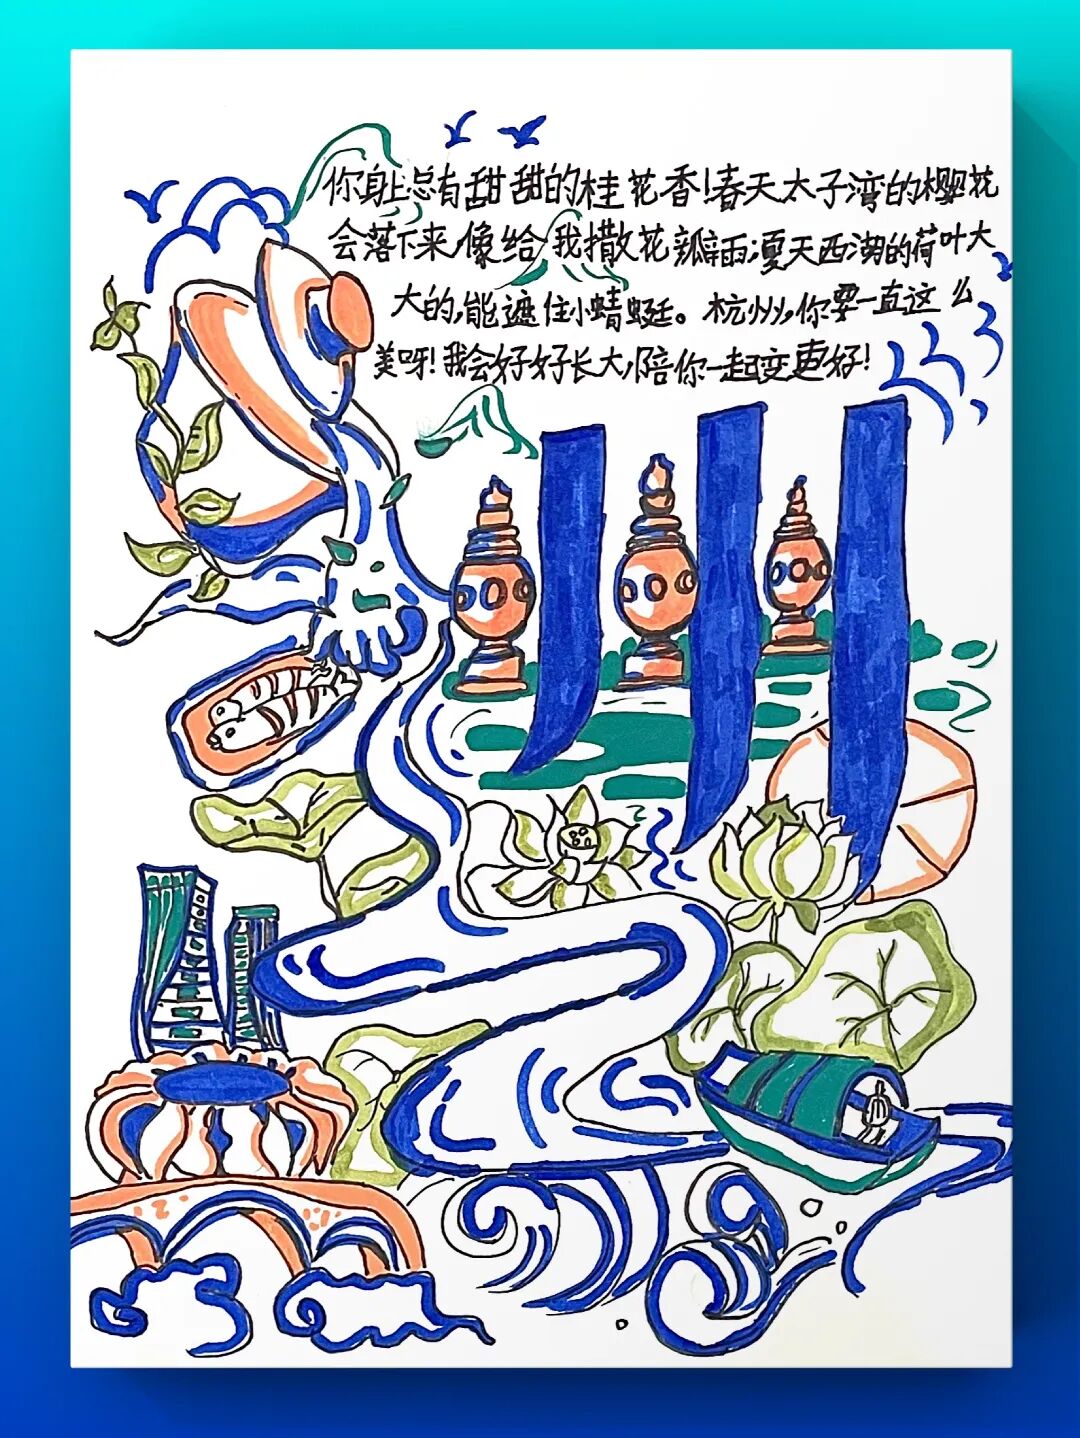 你身上总有甜甜的桂花香!春天太子湾的樱花
会落下来,像给我撒花瓣雨;夏天西湖的荷叶大
大的,能遮住小蜻蜓。杭州,你要一直这么
美呀!我会好好长大,陪你一起变更好!